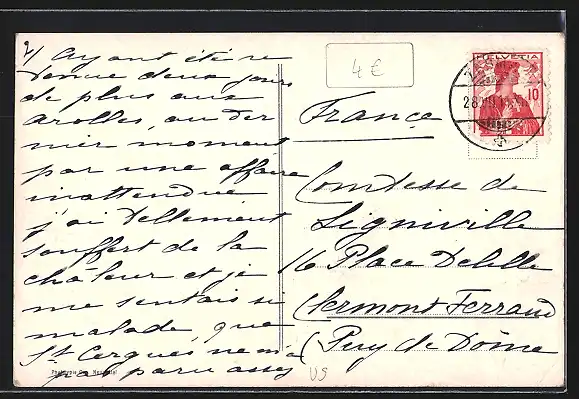 2/ Ayant été re
tenue deux jours
de plus aux
Arolles, au der
nier moment
par une affaire
inattendue
j'ai tellement
souffert de la
chaleur et je
me sentais si
malade, que
St. Cergues, ne m'a
pas paru assez
4 €
HELVETIA
10
France
Comtesse de
Ligniville
16 Place Delille
Clermont Ferrand
(Puy de Dôme
VS